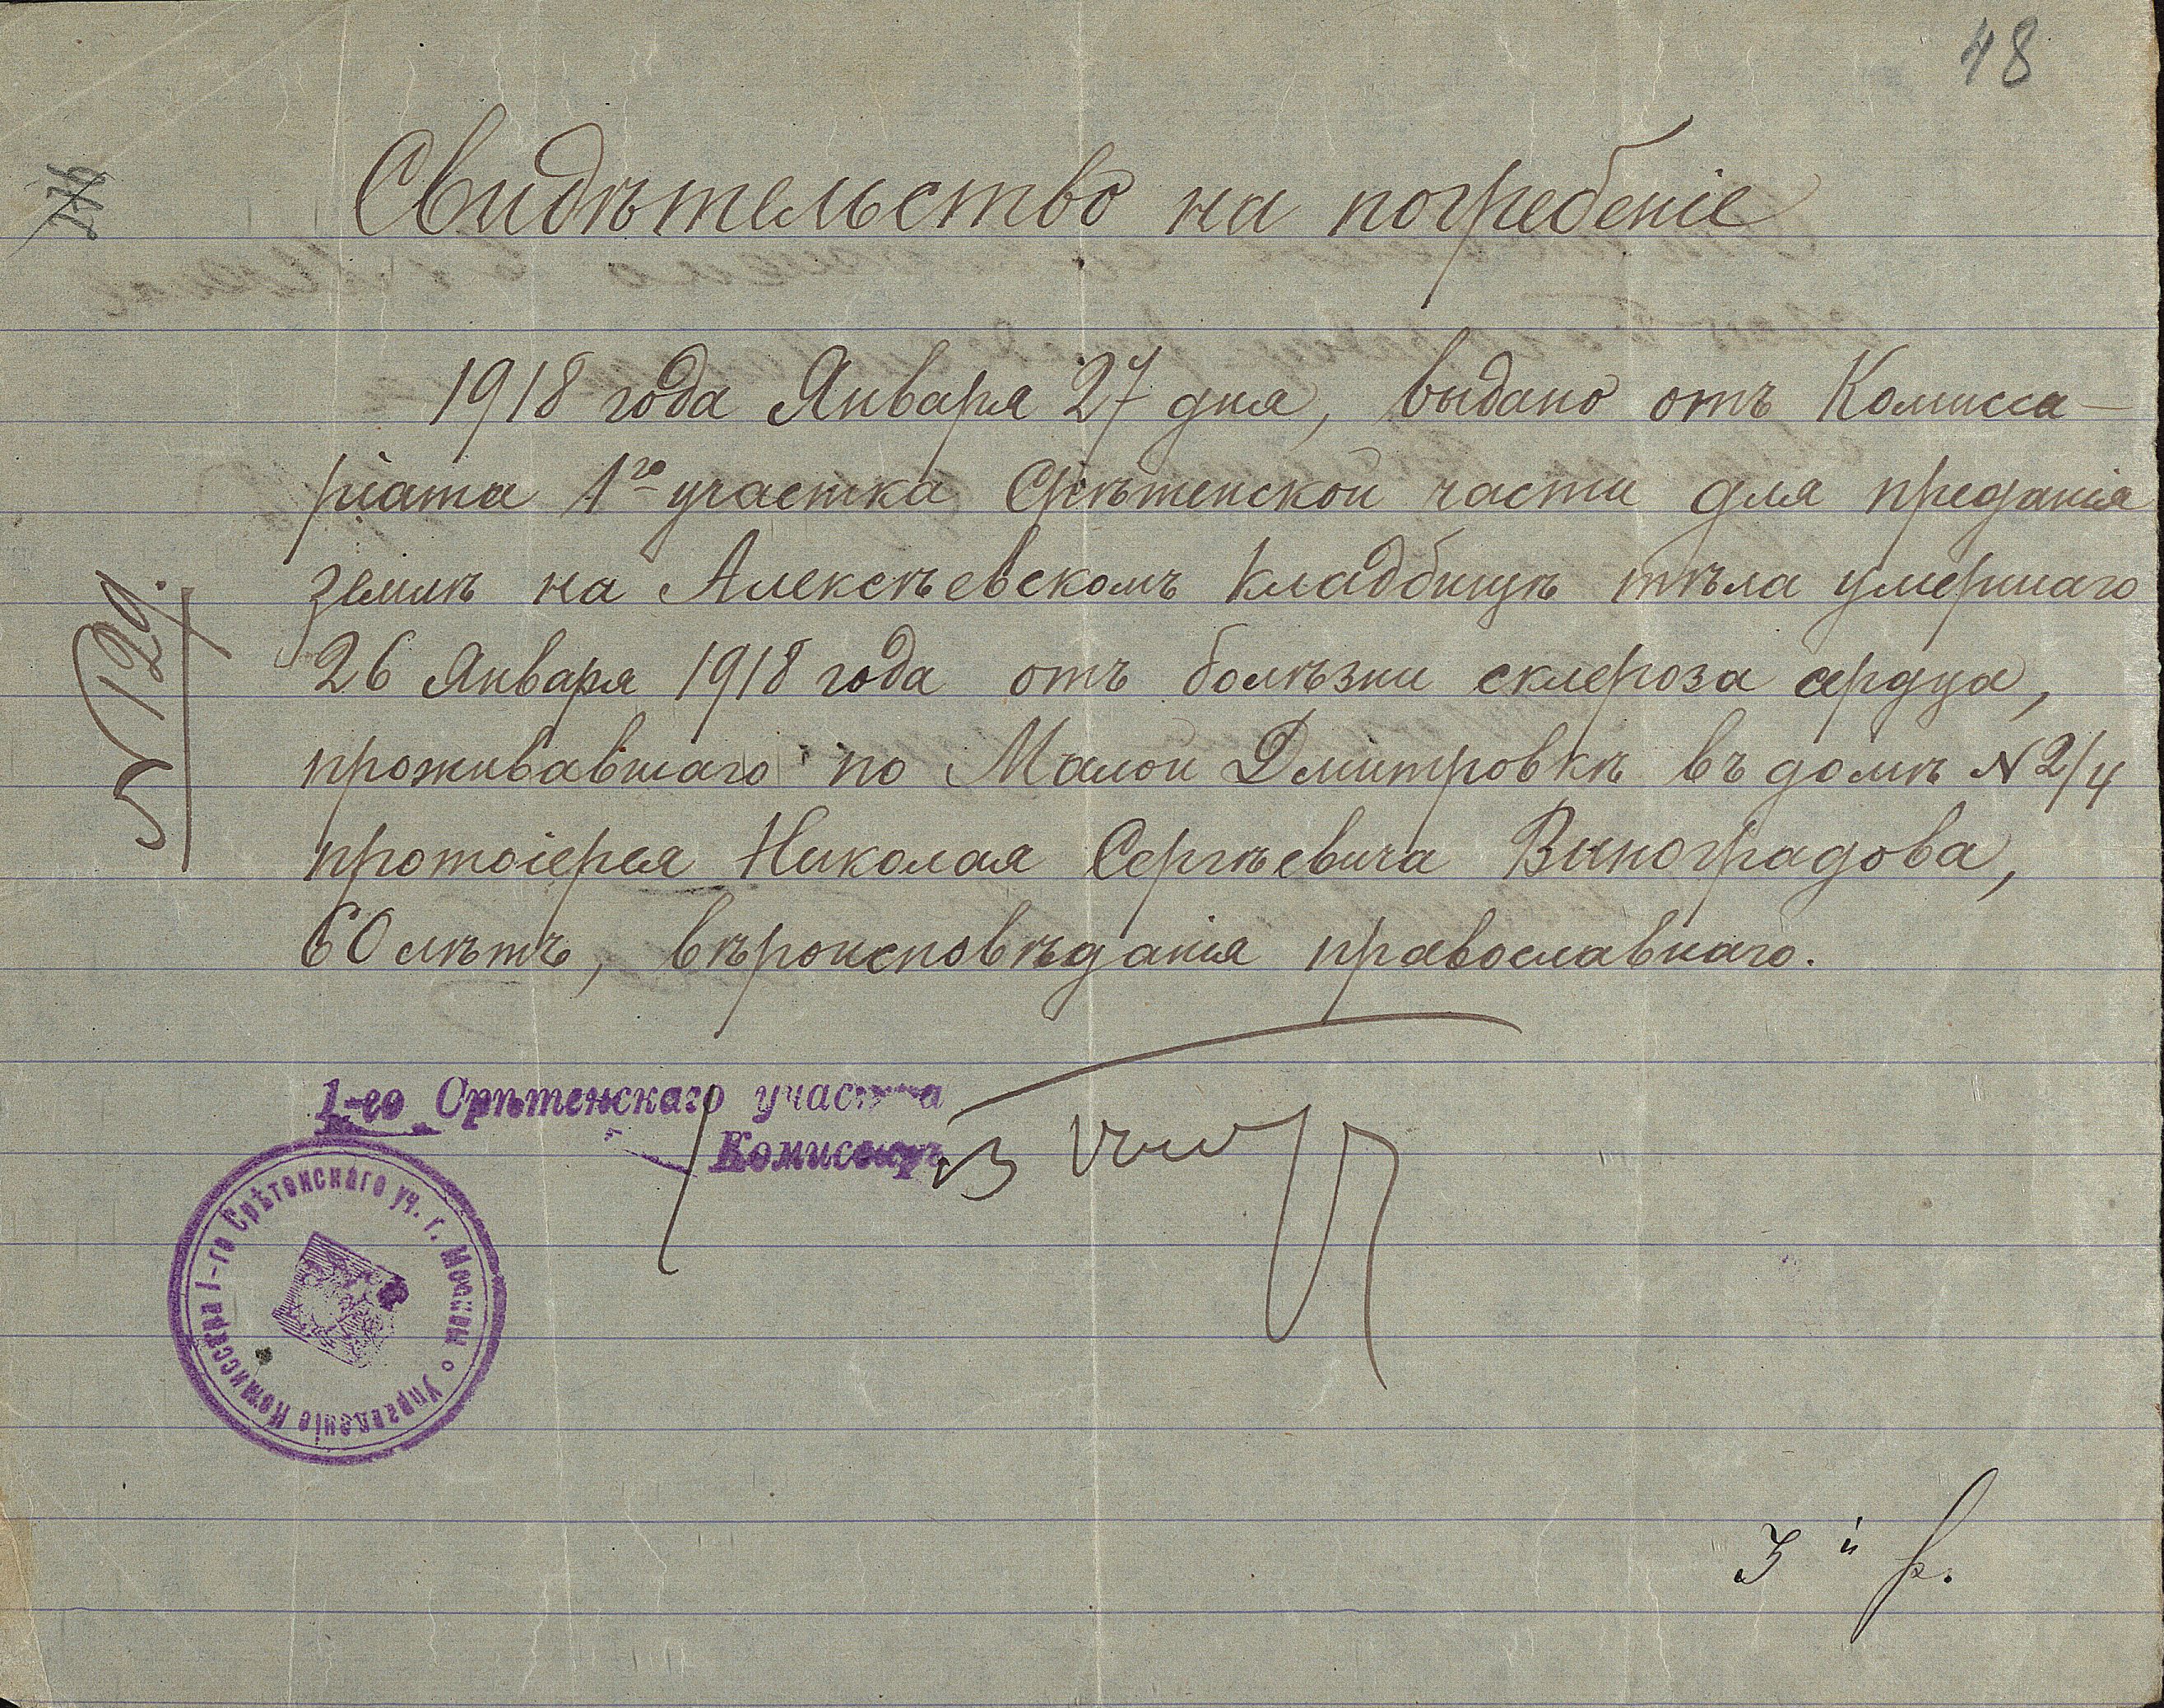 48
176
Свидѣтельство на погребеніе
1918 года Января 27 дня, выдано отъ Комисса-
ріата 1го участка Срѣтенской части для преданія
землѣ на Алексѣевскомъ кладбищѣ тѣла умершаго
26 Января 1918 года отъ болѣзни склероза сердца,
проживавшаго по Малой Дмитровкѣ въ домѣ N 2/4
протоіерея Николая Сергѣевича Виноградова,
60 лѣтъ, вѣроисповѣданія православнаго.
N 129.
1-го Срѣтенскаго участка
Комиссаръ
Управленіе Комиссара 1-го Срѣтенскаго уч. г. Москвы
3й р.